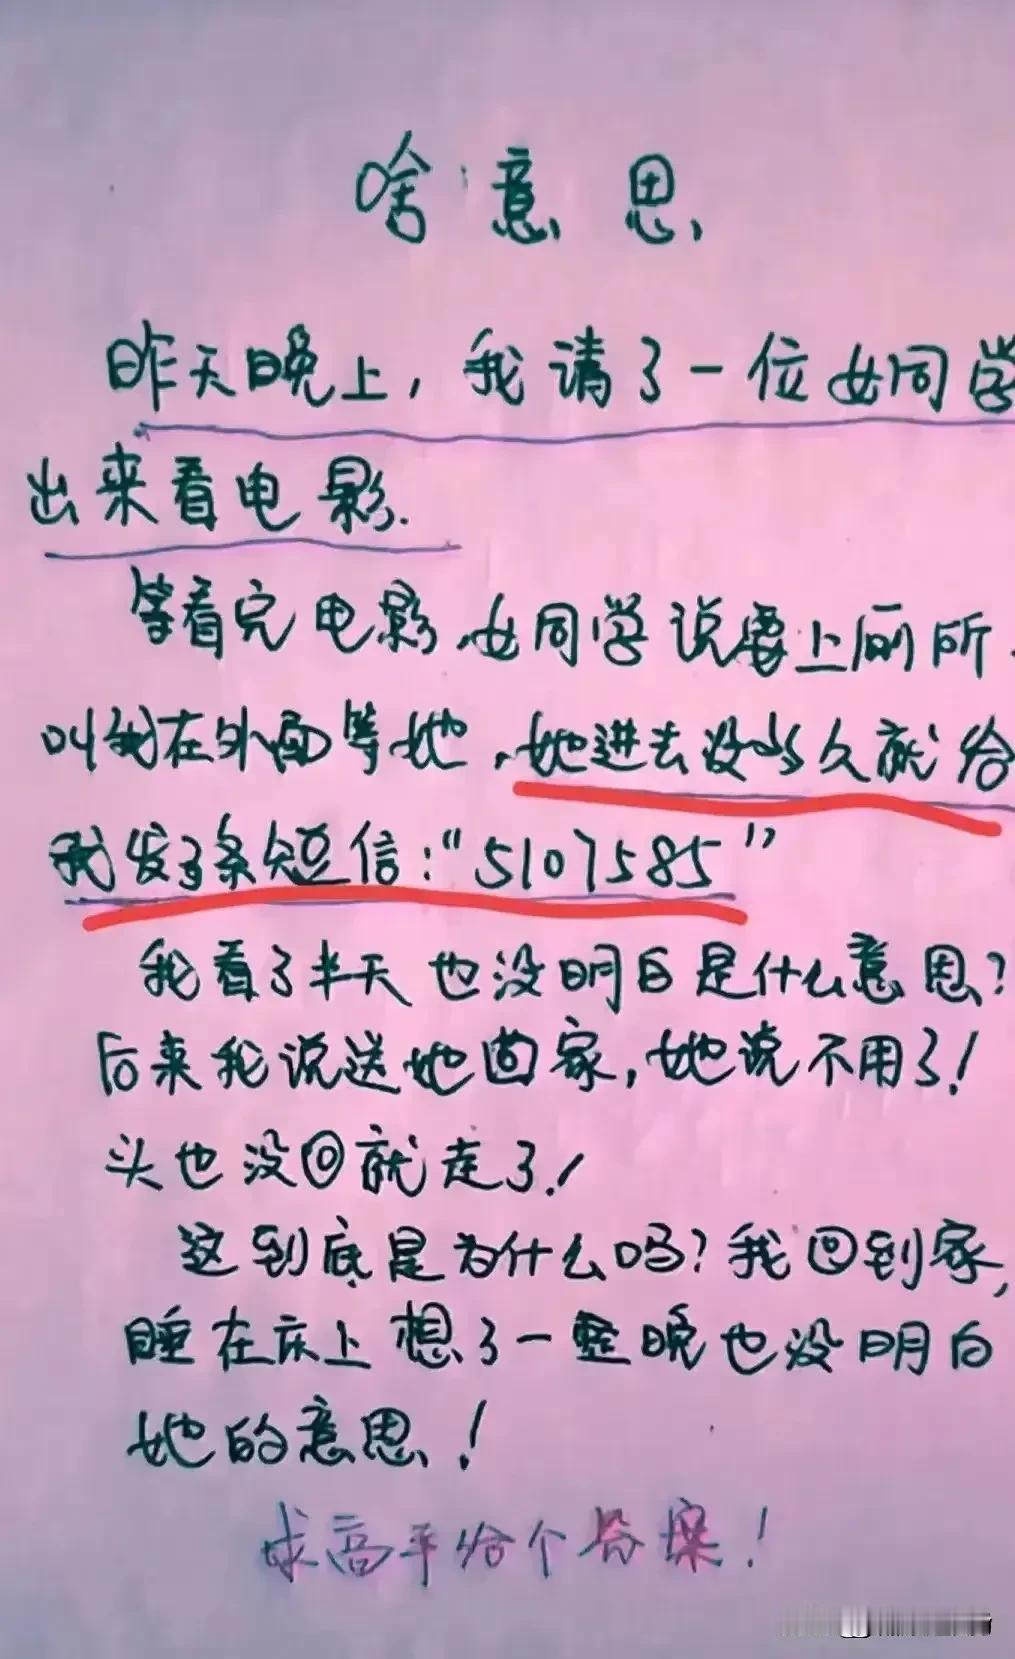 啥意思
昨天晚上，我请了一位女同学
出来看电影.
等看完电影，女同学说要上厕所.
叫我在外面等她，她进去没多久就给
我发了条短信："5107585"
我看了半天也没明白是什么意思？
后来我说送她回家，她说不用了！
头也没回就走了！
这到底是为什么吗？我回到家，
睡在床上想了一整晚也没明白
她的意思！
求高手给个答案！